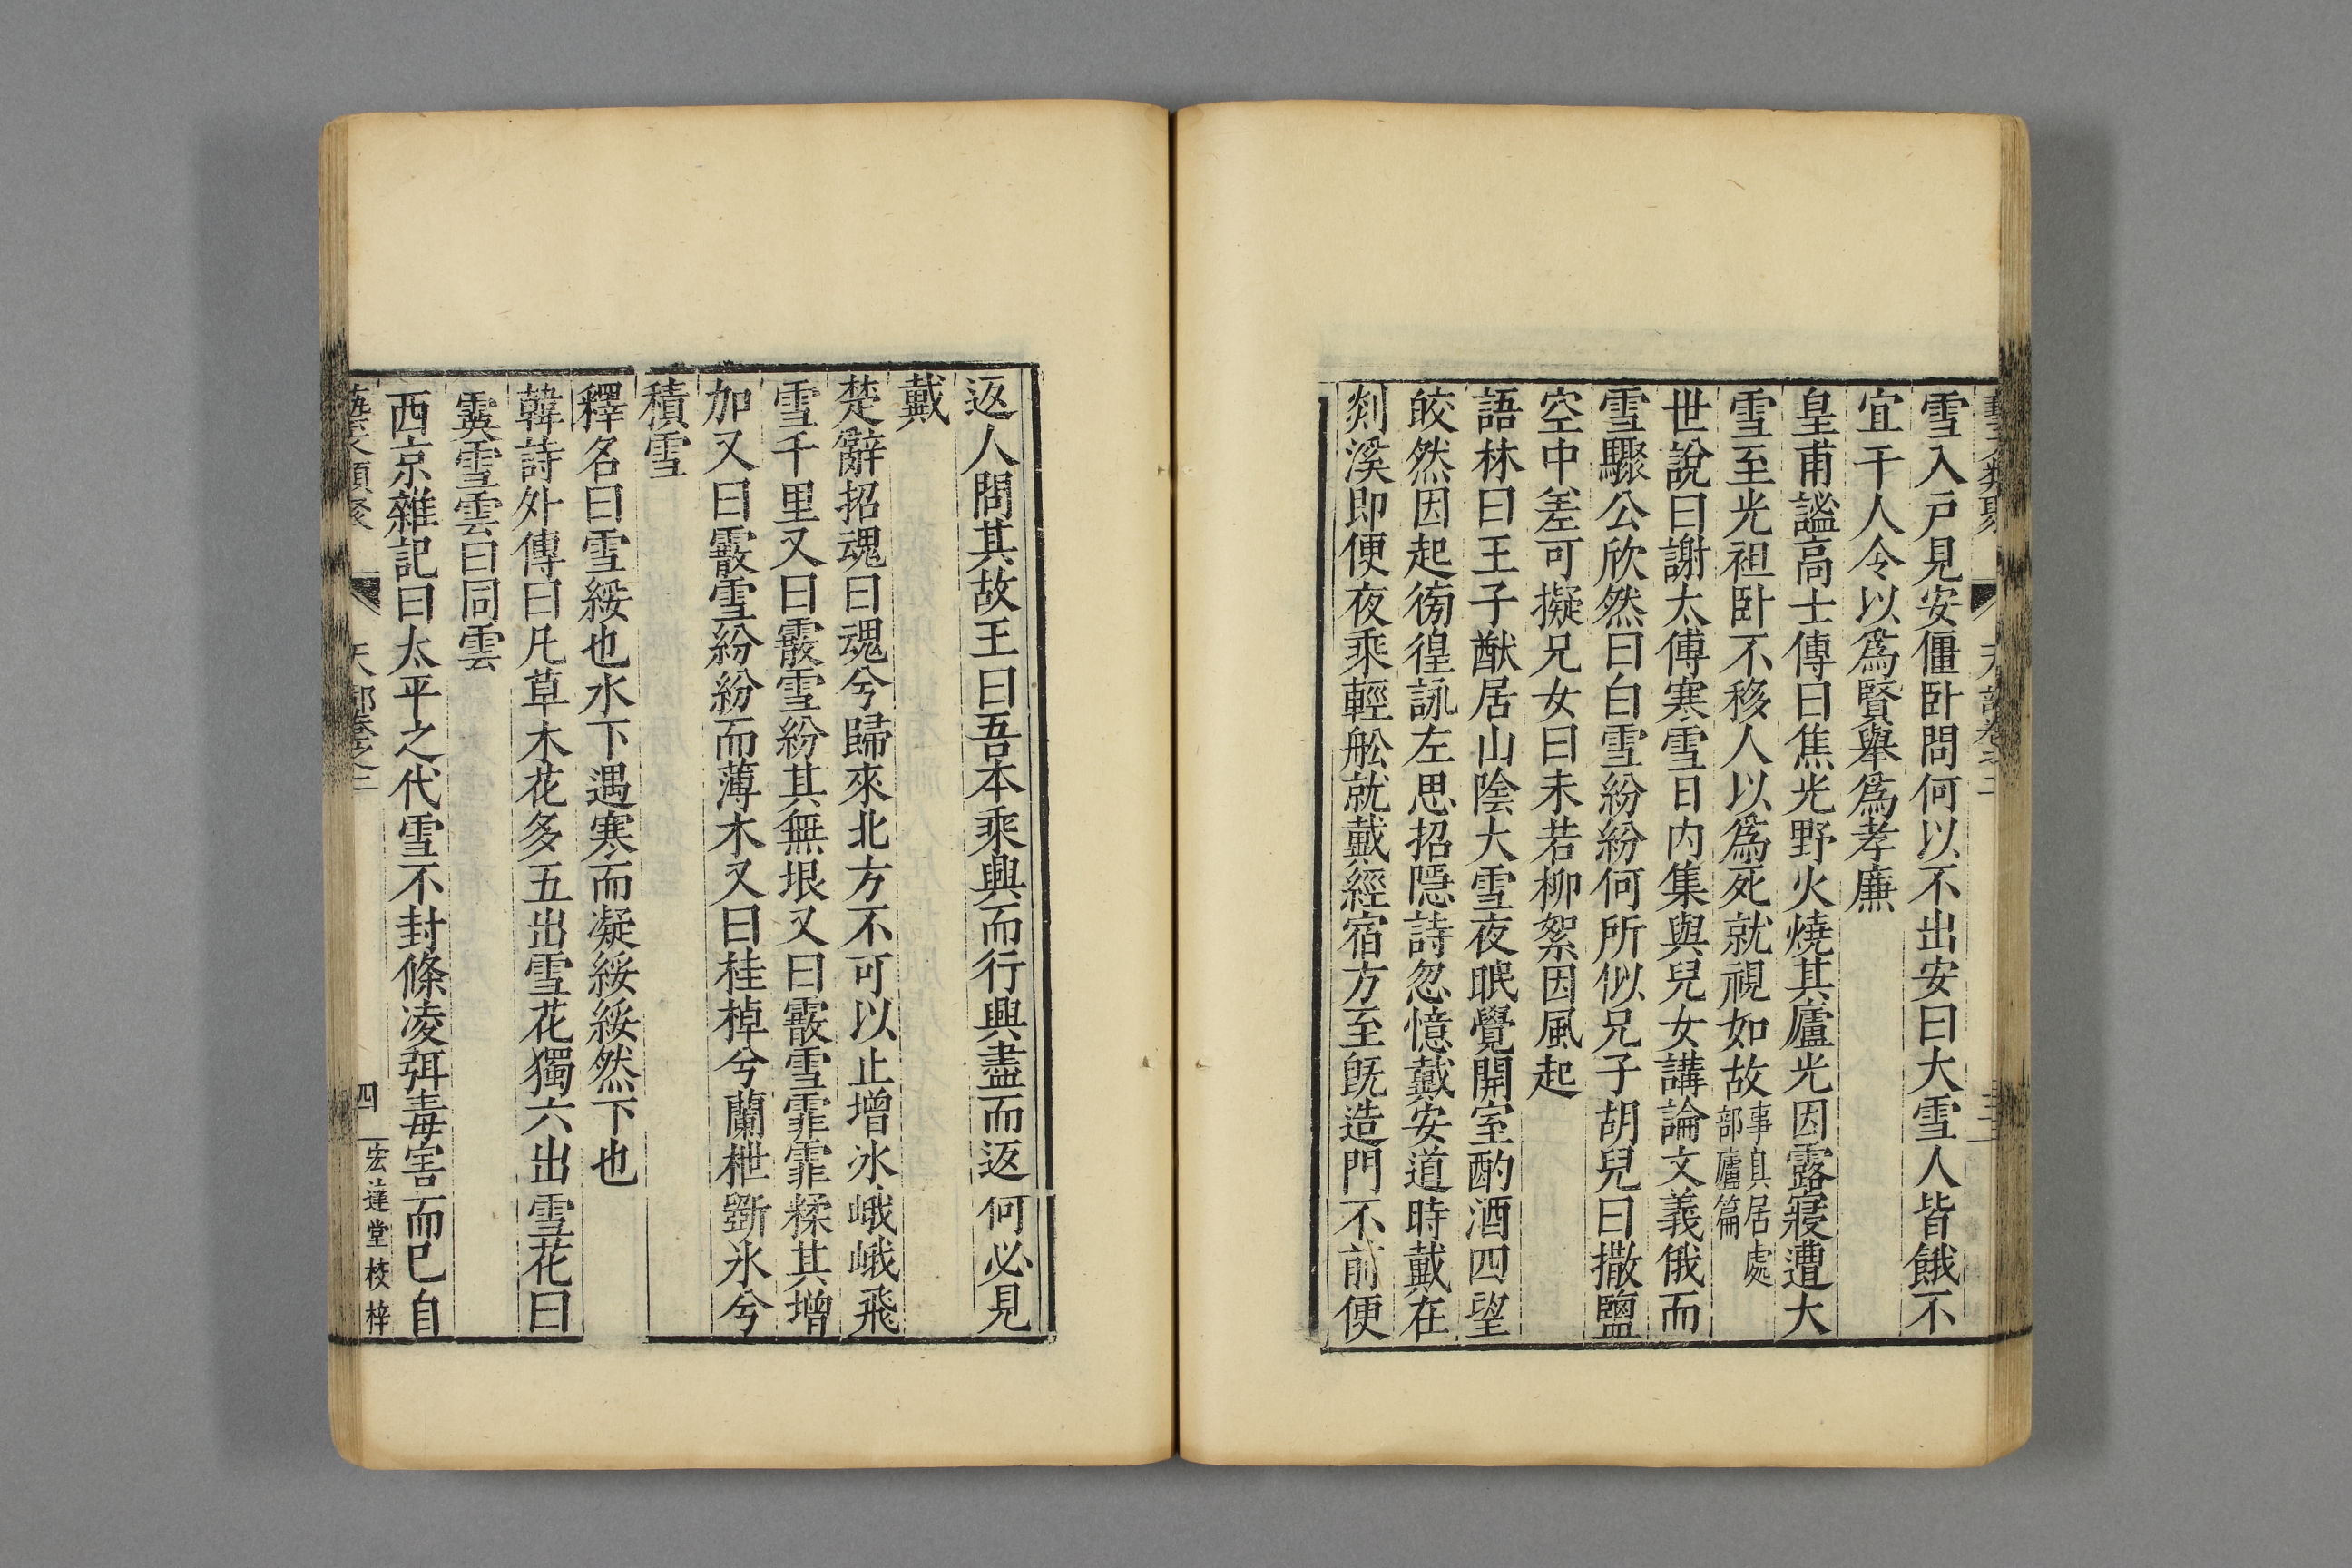 雪入戸見安僵卧問何以不出安曰大雪人皆餓不
宜干人令以爲賢舉爲孝廉
皇甫謐高士傳曰焦光野火燒其廬光因露寢遭大
雪至光袒卧不移人以爲死就視如故事具居處部廬篇
世說曰謝太傅寒雪日内集與兒女講論文義俄而
雪驟公欣然曰白雪紛紛何所似兄子胡兒曰撒鹽
空中差可擬兄女曰未若柳絮因風起
語林曰王子猷居山陰大雪夜眠覺開室酌酒四望
皎然因起徬徨詠左思招隱詩忽憶戴安道時戴在
剡溪即便夜乘輕舩就戴經宿方至旣造門不前便
返人問其故王曰吾本乘興而行興盡而返何必見
戴
楚辭招魂曰魂兮歸來北方不可以止增冰峨峨飛
雪千里又曰霰雪紛其無垠又曰霰雪霏霏糅其增
加又曰霰雪紛紛而薄木又曰桂棹兮蘭枻斲氷兮
積雪
釋名曰雪綏也水下遇寒而凝綏綏然下也
韓詩外傳曰凡草木花多五出雪花獨六出雪花曰
霙雪雲曰同雲
西京雜記曰太平之代雪不封條凌弭毒害而已自
藝文類聚 天部卷之二 四 宏達堂校梓